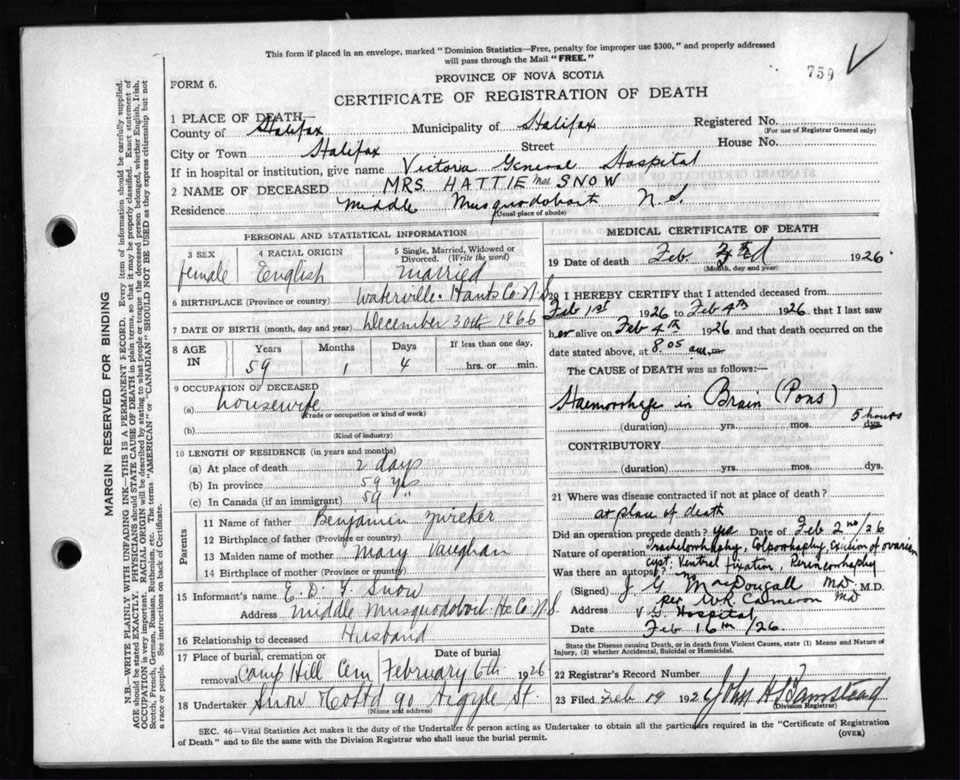 This form if placed in an envelope, marked "Dominion Statistics—Free, penalty for improper use $300," and properly addressed
will pass through the Mail "FREE."
759
PROVINCE OF NOVA SCOTIA
FORM 6.
CERTIFICATE OF REGISTRATION OF DEATH
1 PLACE OF DEATH—
County of Halifax Municipality of Halifax Registered No.
(For use of Registrar General only)
City or Town Halifax Street House No.
If in hospital or institution, give name Victoria General Hospital
2 NAME OF DECEASED MRS. HATTIE Mae SNOW
Residence Middle Musquodoboit N.S.
(Usual place of abode)
PERSONAL AND STATISTICAL INFORMATION
3 SEX 4 RACIAL ORIGIN 5 Single, Married, Widowed or
Divorced. (Write the word)
female English married
6 BIRTHPLACE (Province or country) Waterville. Hants Co. N.S.
7 DATE OF BIRTH (month, day and year) December 30th 1866
8 AGE IN Years Months Days If less than one day,
59 1 4 hrs. or min.
9 OCCUPATION OF DECEASED
(a) housewife
(Trade or occupation or kind of work)
(b)
(Kind of industry)
10 LENGTH OF RESIDENCE (in years and months)
(a) At place of death 2 days
(b) In province 59 yrs
(c) In Canada (if an immigrant) 59 "
Parents
11 Name of father Benjamin Zwicker
12 Birthplace of father (Province or country)
13 Maiden name of mother Mary Vaughan
14 Birthplace of mother (Province or country)
15 Informant's name E. D. Y. Snow
Address Middle Musquodoboit Hx. Co. N.S.
16 Relationship to deceased Husband
17 Place of burial, cremation or Date of burial
removal Camp Hill Cem February 6th 1926
18 Undertaker Snow & Co Ltd 90 Argyle St.
(Name and address)
MEDICAL CERTIFICATE OF DEATH
19 Date of death Feb. 1926
(Month, day and year)
20 I HEREBY CERTIFY that I attended deceased from
Feb 1st 1926 to Feb 4th 1926, that I last saw
her alive on Feb 4th 1926, and that death occurred on the
date stated above, at 8.05 a.m.
The CAUSE of DEATH was as follows:—
Haemorrhage in Brain (Pons)
5 hours
(duration) yrs. mos. dys.
CONTRIBUTORY
(duration) yrs. mos. dys.
21 Where was disease contracted if not at place of death?
at place of death
Did an operation precede death? yes Date of Feb 2nd/26
Nature of operation Trachelorrhaphy, Colporrhaphy, Excision of ovarian
cyst, Ventral fixation, Perineorrhaphy
Was there an autopsy? No
(Signed) J. G. MacDougall MD M.D.
per WK Cameron MD
Address V.G. Hospital
Date Feb 16th /26
State the Disease causing Death, or in death from Violent Causes, state (1) Means and Nature of
Injury, (2) whether Accidental, Suicidal or Homicidal.
22 Registrar's Record Number
23 Filed Feb 19 1926 John A.
(Division Registrar)
SEC. 46—Vital Statistics Act makes it the duty of the Undertaker or person acting as Undertaker to obtain all the particulars required in the "Certificate of Registration
of Death" and to file the same with the Division Registrar who shall issue the burial permit.
(OVER)
MARGIN RESERVED FOR BINDING
N.B.—WRITE PLAINLY WITH UNFADING INK—THIS IS A PERMANENT RECORD. Every item of information should be carefully supplied.
AGE should be stated EXACTLY. PHYSICIANS should STATE CAUSE OF DEATH in plain terms, so that it may be properly classified. Exact statement of
OCCUPATION is very important. RACIAL ORIGIN will be described by stating to what people or tongue the deceased person belonged, whether English, Irish,
Scotch, French, German, Russian, Ruthenian, etc. The terms "AMERICAN" or "CANADIAN" SHOULD NOT BE USED as they express citizenship but not
a race or people. See instructions on back of Certificate.